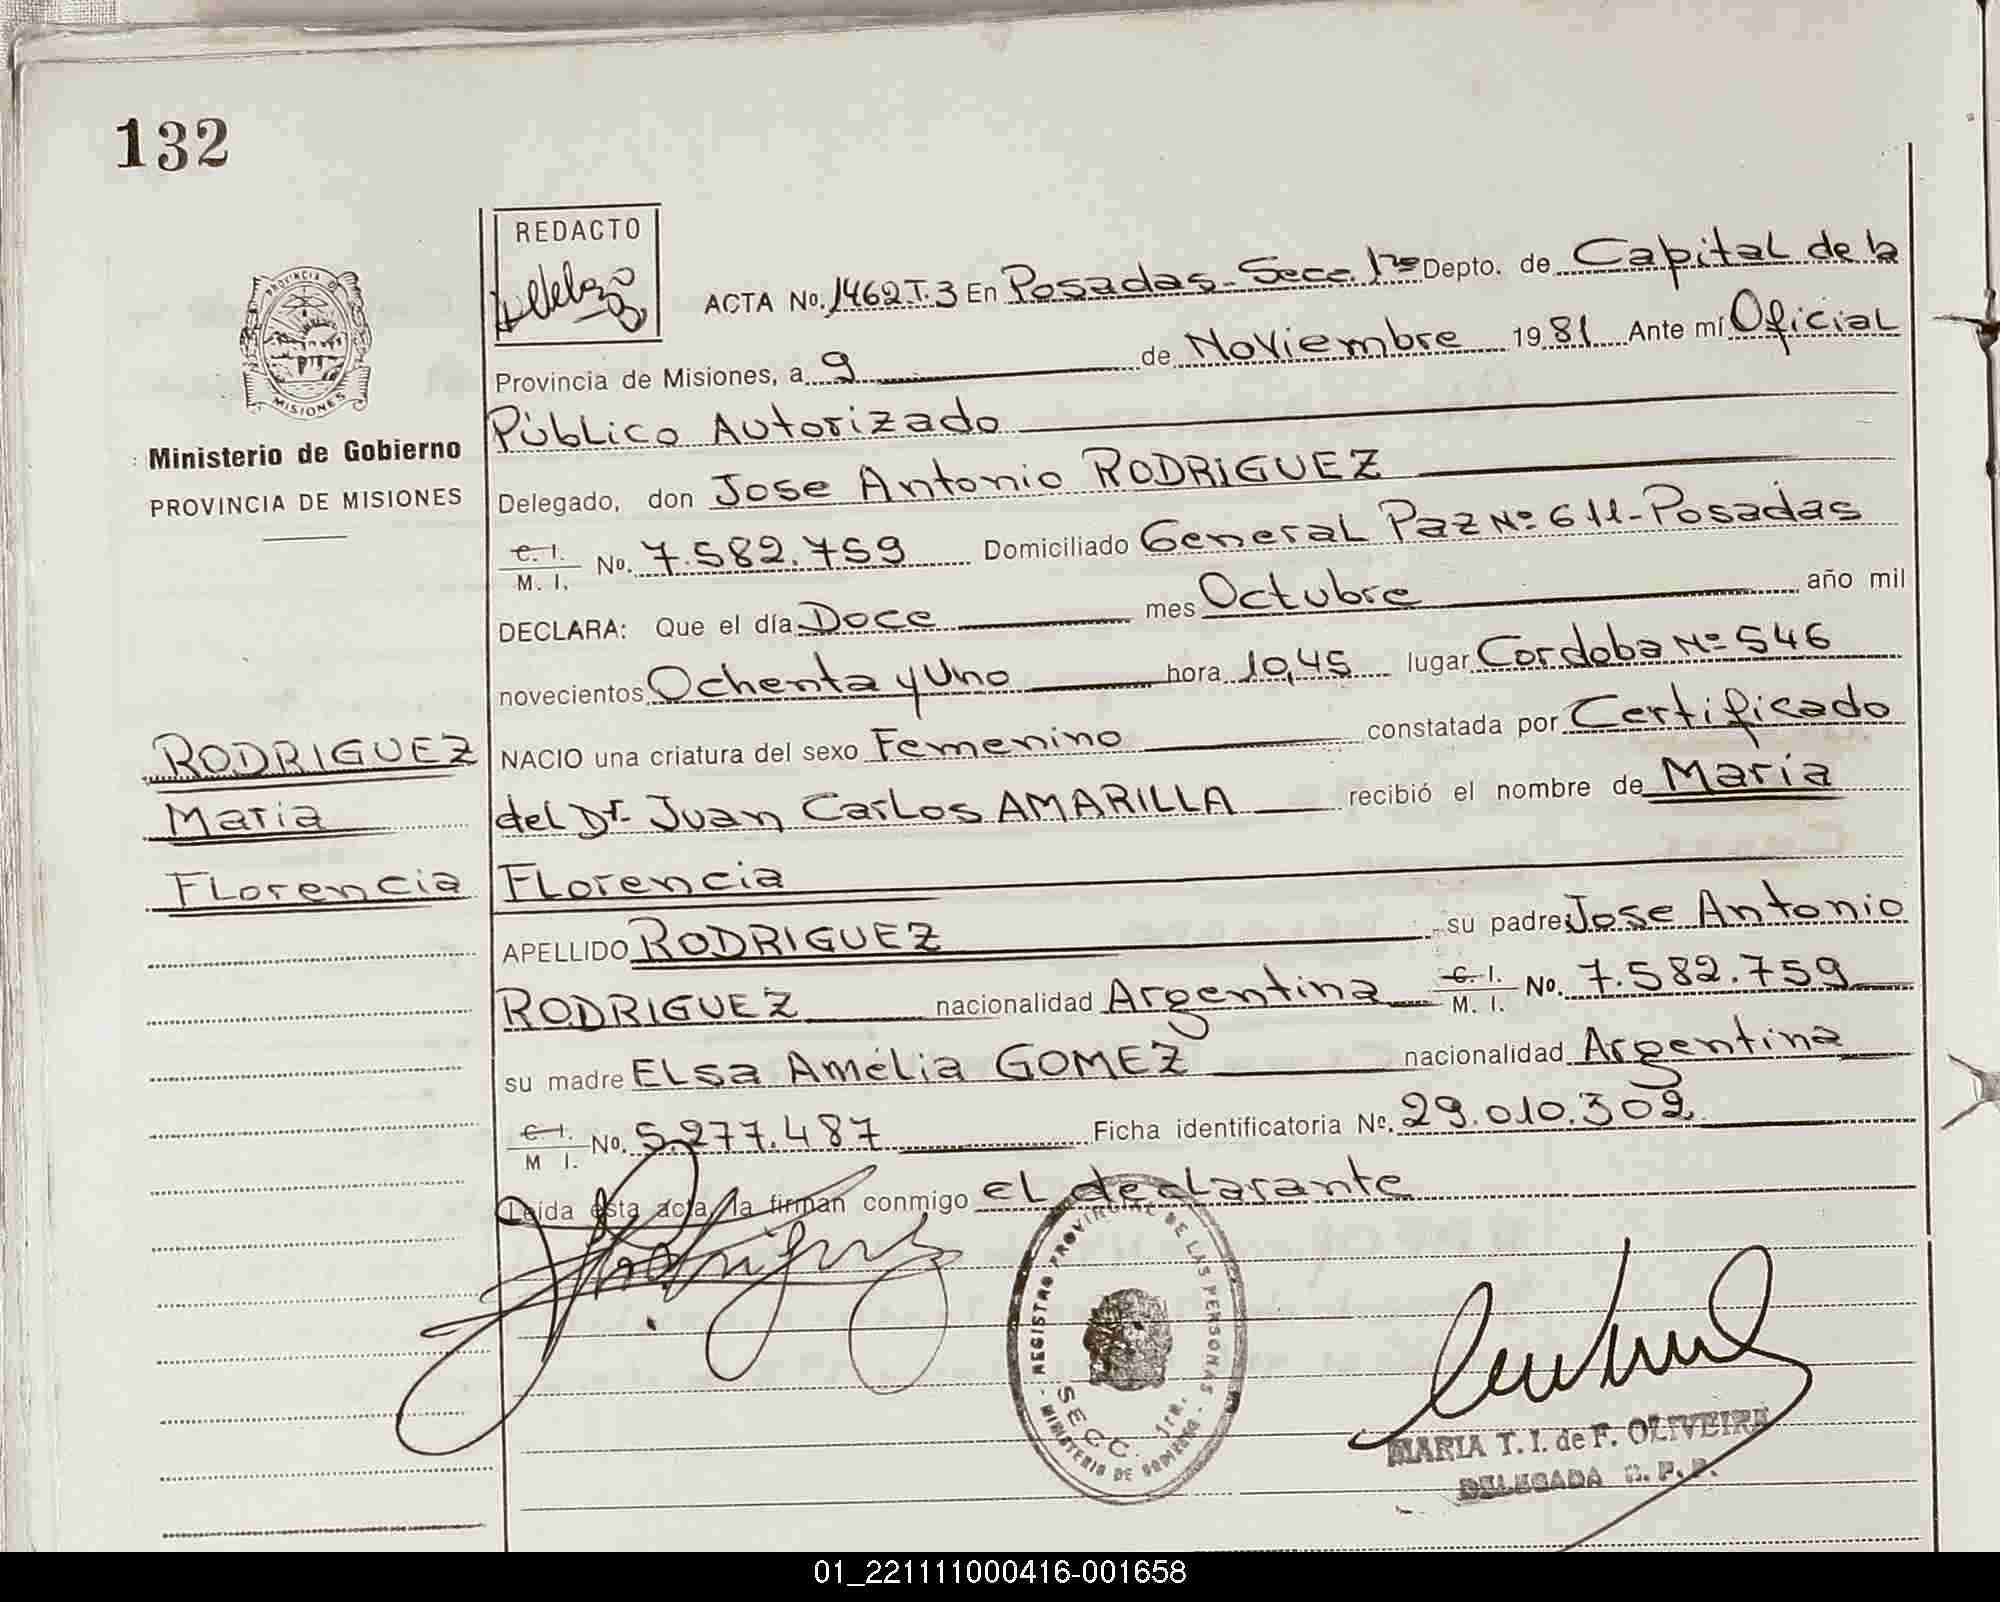 132
REDACTO
PROVINCIA
MISIONES
Ministerio de Gobierno
PROVINCIA DE MISIONES
RODRIGUEZ
Maria
Florencia
ACTA No. 1462 T.3 En Posadas - Secc. 1ra Depto. de Capital de la
Provincia de Misiones, a 9 de Noviembre 1981 Ante mí Oficial
Público Autorizado
Delegado, don Jose Antonio RODRIGUEZ
C. I. M. I. No. 7.582.759 Domiciliado General Paz Nº 611 - Posadas
DECLARA: Que el día Doce mes Octubre año mil
novecientos Ochenta y Uno hora 10,45 lugar Cordoba Nº 546
NACIO una criatura del sexo Femenino constatada por Certificado
del Dr. Juan Carlos AMARILLA recibió el nombre de Maria
Florencia
APELLIDO RODRIGUEZ su padre Jose Antonio
RODRIGUEZ nacionalidad Argentina C. I. M. I. No. 7.582.759
su madre Elsa Amélia GOMEZ nacionalidad Argentina
C. I. M I. No. 5.277.487 Ficha identificatoria No. 29.010.302
Leída esta acta la firman conmigo el declarante
REGISTRO PROVINCIAL DE LAS PERSONAS
SECC. 1ra.
MINISTERIO DE GOBIERNO
MARIA T. I. de F. OLIVEIRA
DELEGADA R. P. P.
01_221111000416-001658